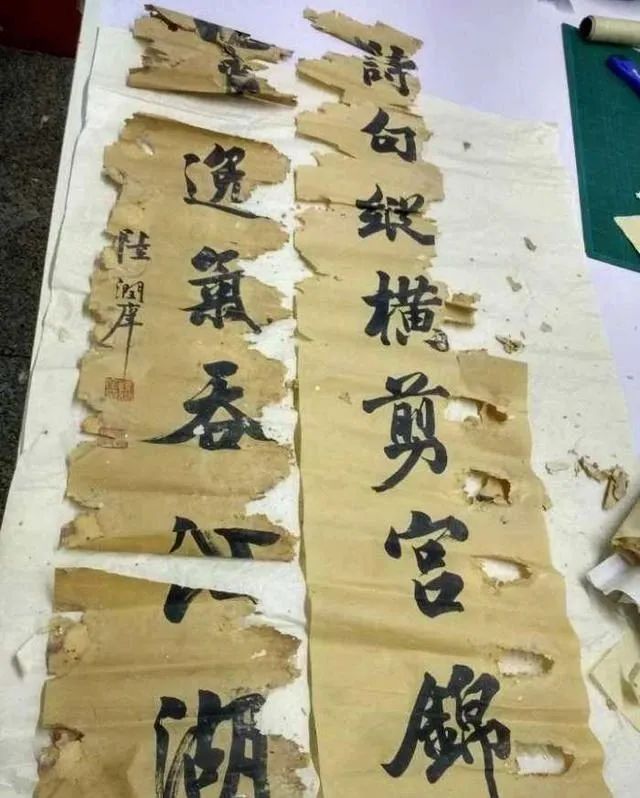 詩句縱橫剪宮錦
逸氣吞江湖
陸潤庠